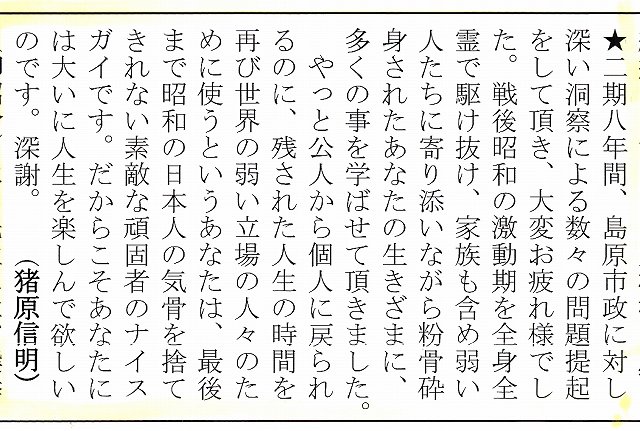 ★二期八年間、島原市政に対し
深い洞察による数々の問題提起
をして頂き、大変お疲れ様でし
た。戦後昭和の激動期を全身全
霊で駆け抜け、家族も含め弱い
人たちに寄り添いながら粉骨砕
身されたあなたの生きざまに、
多くの事を学ばせて頂きました。
　やっと公人から個人に戻られ
るのに、残された人生の時間を
再び世界の弱い立場の人々のた
めに使うというあなたは、最後
まで昭和の日本人の気骨を捨て
きれない素敵な頑固者のナイス
ガイです。だからこそあなたに
は大いに人生を楽しんで欲しい
のです。深謝。　　（猪原信明）